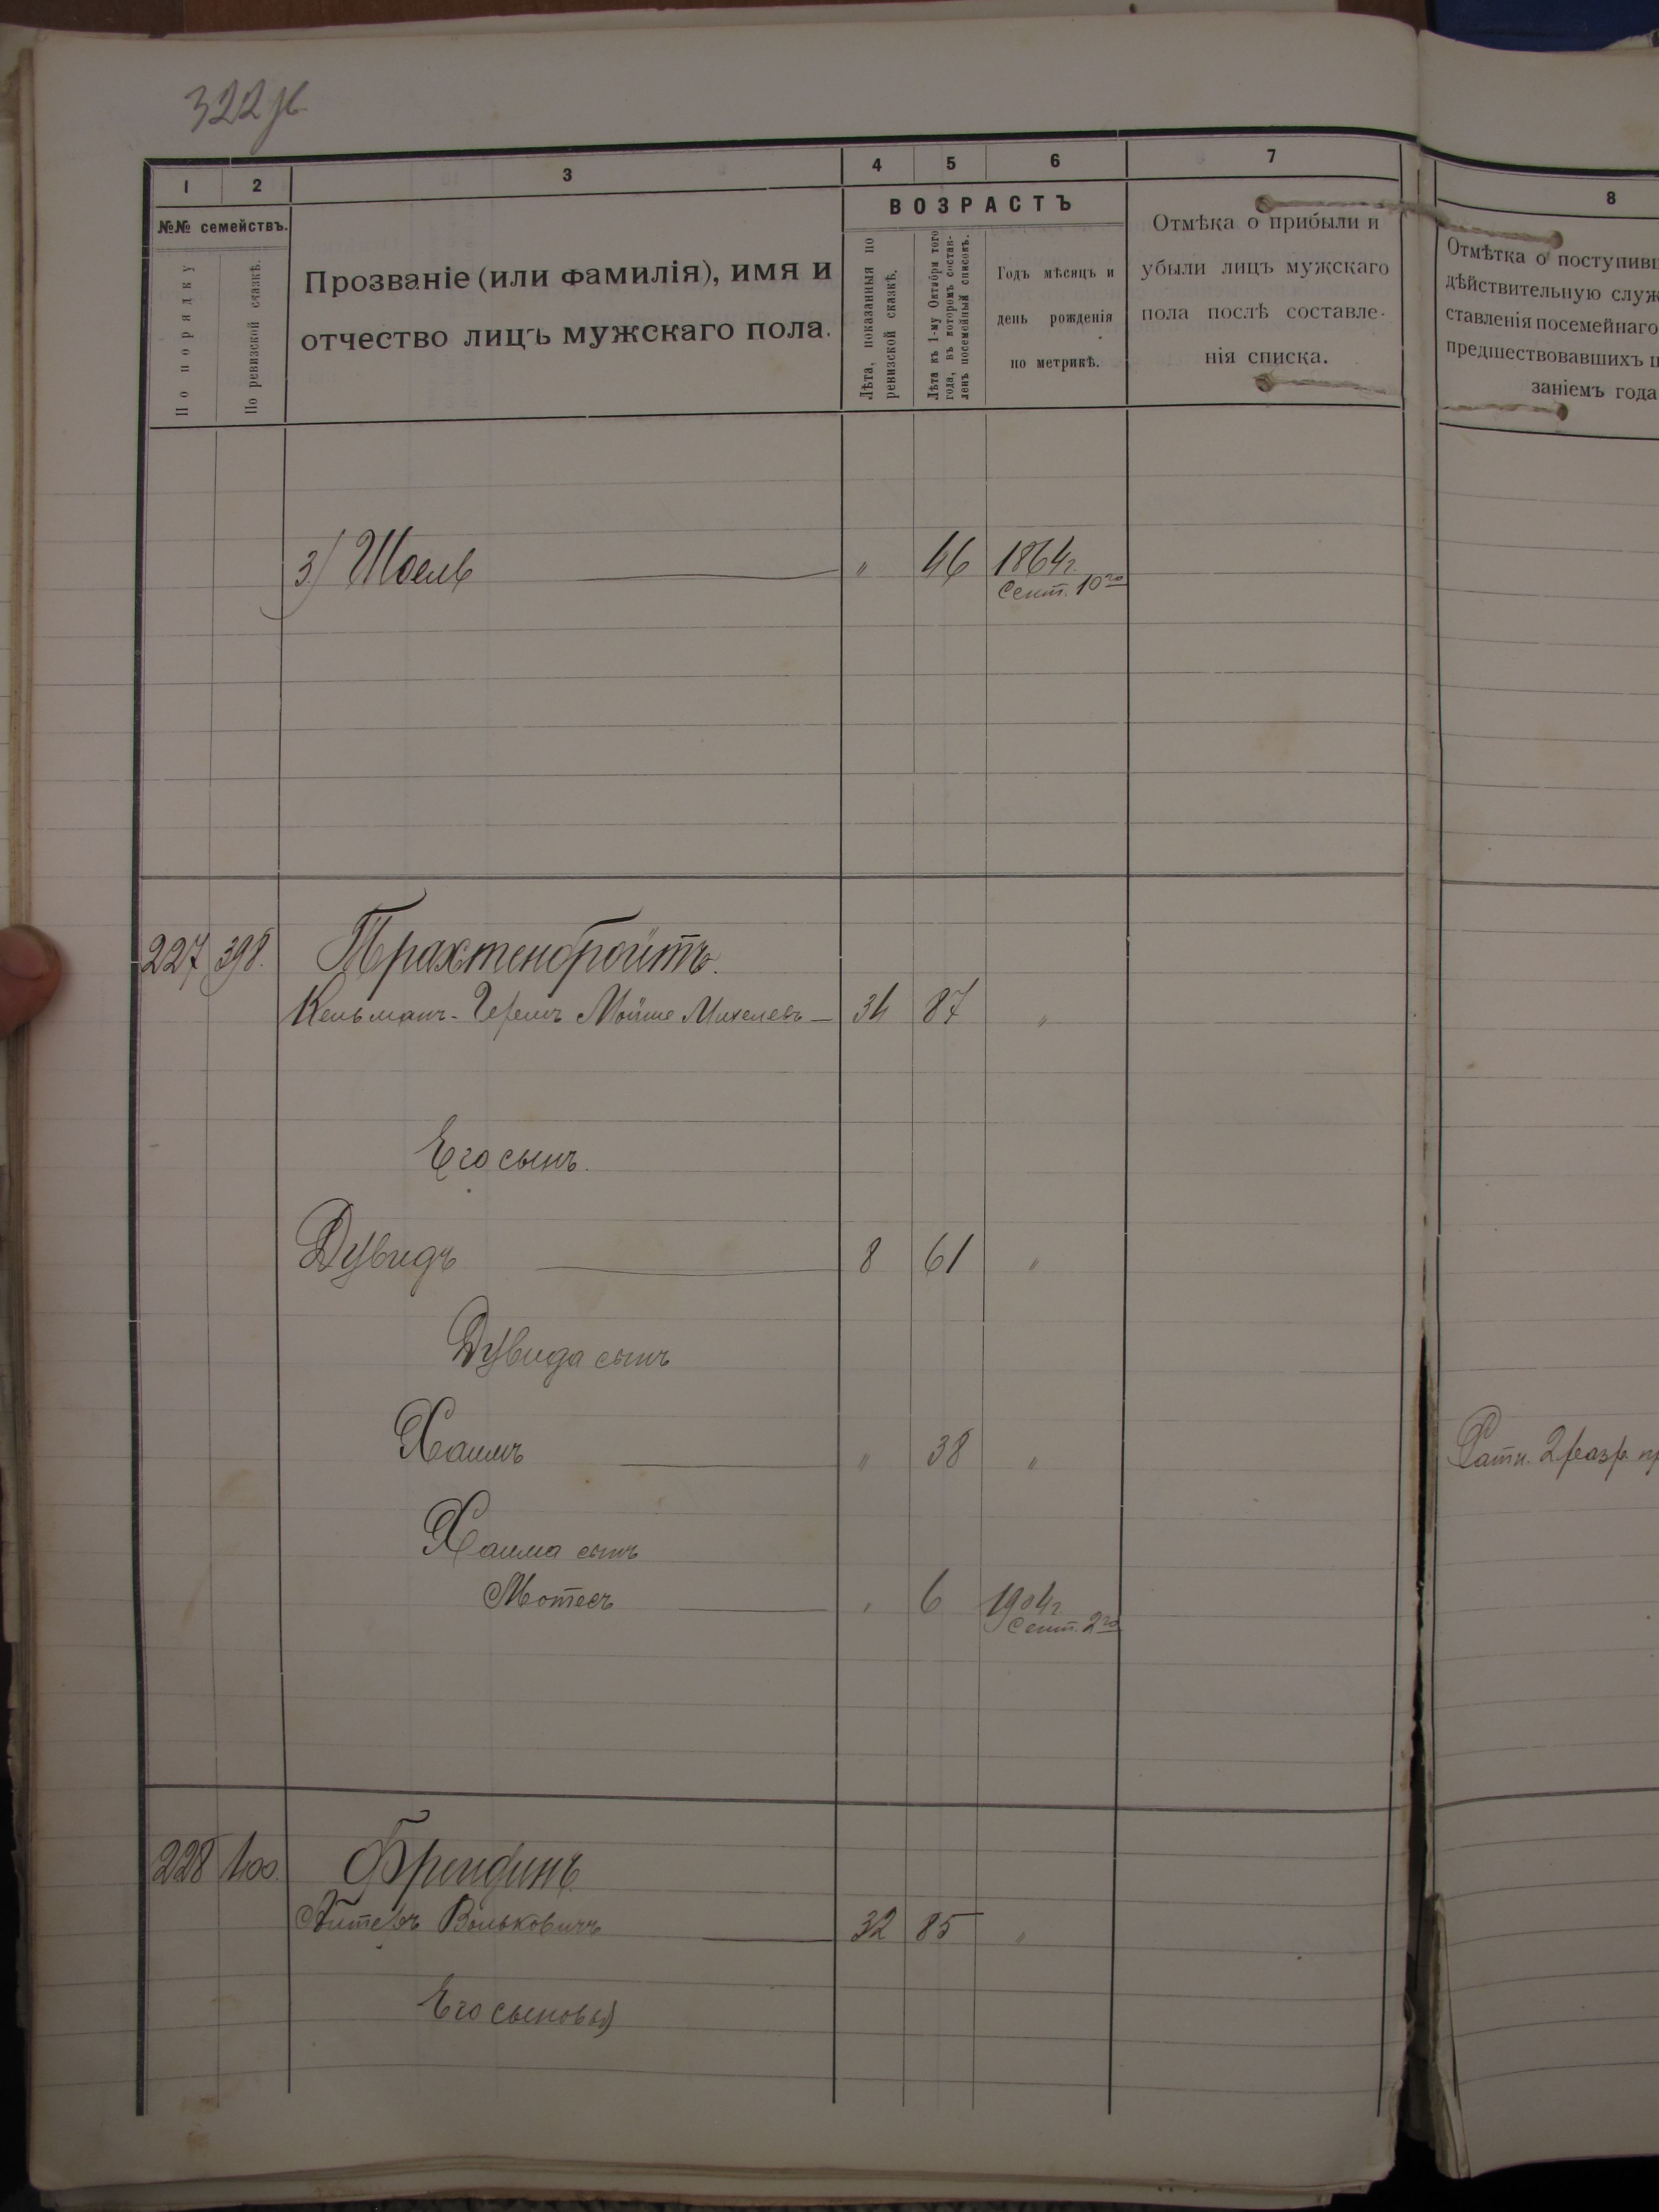 322
1 2 3 4 5 6 7 8
№№ семействъ.
По порядку
По ревизской сказкѣ.
Прозваніе (или фамилія), имя и
отчество лицъ мужскаго пола.
ВОЗРАСТЪ
Лѣта, показанныя по
ревизской сказкѣ.
Лѣта къ 1-му Октября того
года, въ которомъ состав-
ленъ посемейный списокъ.
Годъ мѣсяцъ и
день рожденія
по метрикѣ.
Отмѣка о прибыли и
убыли лицъ мужскаго
пола послѣ составле-
нія списка.
Отмѣтка о поступивш
дѣйствительную служ
ставленія посемейнаго
предшествовавшихъ п
заніемъ года
3) Шоель " 46 1864г.
Сент. 10го
227 398. Трахтенбройтъ.
Кельманъ-Гершъ Мойше Михелевъ 34 87 "
Его сынъ.
Дувидъ 8 61 "
Дувида сынъ
Хаимъ " 38 " Ратн. 2 разр. пр
Хаима сынъ
Мотесъ " 6 1904г.
Сент. 2го
228 400.
Вольковичъ 32 85 "
Его сыновья